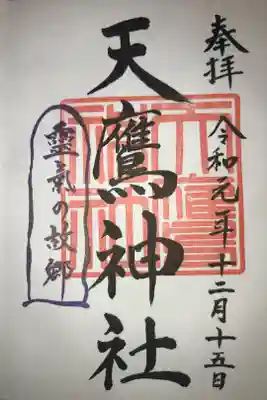 奉拝
令和元年十二月十五日
天鷹神社
靈氣の故郷